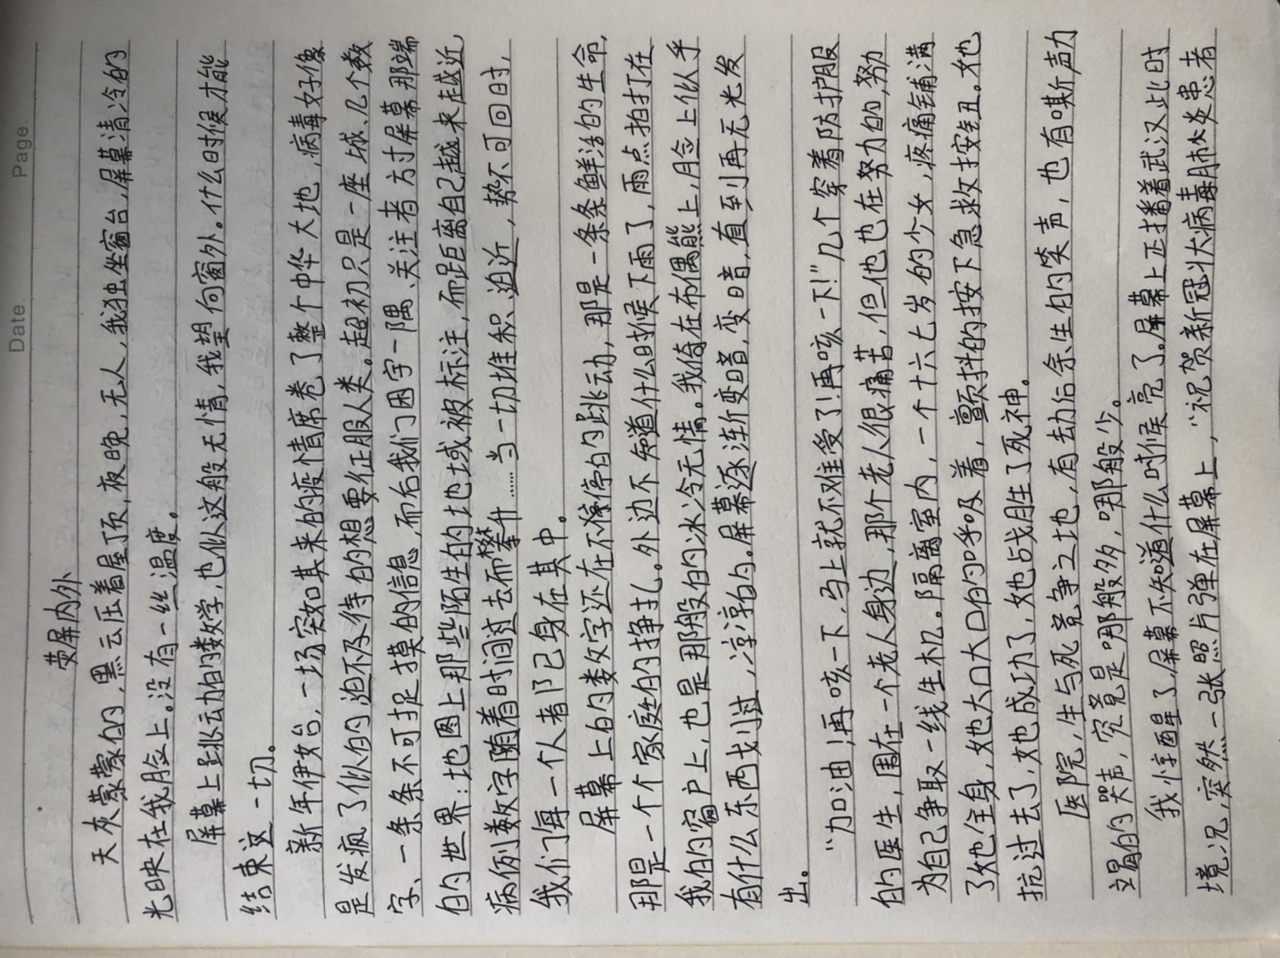 Date
Page.
荧屏内外
天灰蒙蒙的,黑云压着屋顶,夜晚,无人,我独坐窗台,屏幕清冷的
光映在我脸上。没有一丝温度。
屏幕上跳动的数字,也似这般无情,我望向窗外。什么时候才能
结束这一切。
新年伊始,一场突如其来的疫情席卷了整个中华大地,病毒好像
是发疯了似的迫不及待的想要征服人类。起初只是一座城、几个数
字、一条条不可捉摸的信息,而后我们困守一隅、关注者方寸屏幕那端
的世界:地图上那些陌生的地域被标注,而距离自己越来越近,
病例数字随着时间过去而攀升……当一切堆积、迫近,势不可回时,
我们每一个人都已身在其中。
屏幕上的数字还在不停的跳动,那是一条条鲜活的生命,
那是一个个家庭的挣扎。外边不知道什么时候下雨了,雨点拍打在
我的窗户上,也是那般的冰冷无情。我倚在布偶熊上,脸上似乎
有什么东西划过,湿湿的。屏幕逐渐变暗,变暗,直到再无光发
出。
“加油!再咳一下,马上就不难受了!再咳一下!”几个穿着防护服
的医生,围在一个老人身边,那个老人很痛苦,但他也在努力的,努力
为自己争取一线生机。隔离室内,一个十六七岁的少女,疼痛铺满
了她全身,她大口大口的呼吸着,颤抖的按下急救按钮。她
抗过去了,她成功了,她战胜了死神。
医院,生与死竞争之地,有劫后余生的笑声,也有嘶声力
竭的哭声,究竟是哪般多,哪般少。
我惊醒了,屏幕不知道什么时候亮了。屏幕上正播着武汉此时
境况,突然一张照片弹在屏幕上,“祝贺新冠状病毒肺炎患者